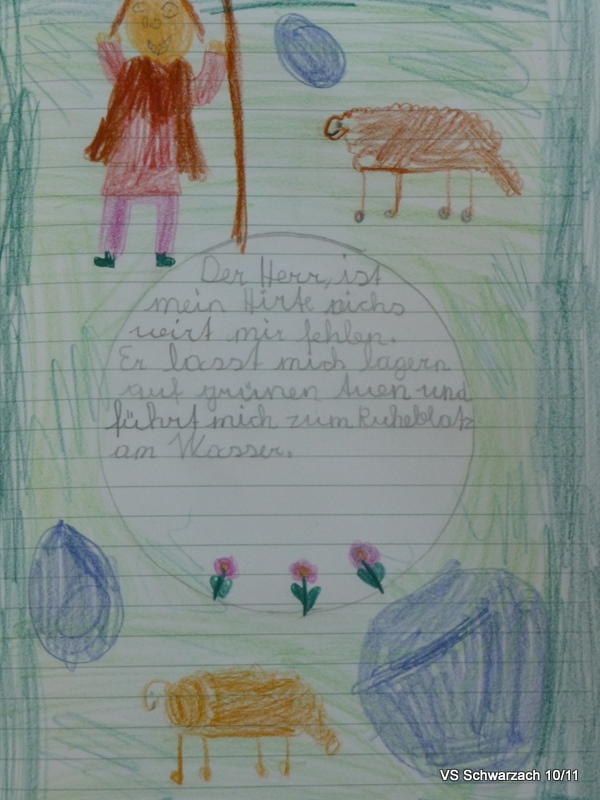 Der Herr, ist
mein Hirte nichs
wirt mir fehlen.
Er lasst mich lagern
auf grünen Auen und
führt mich zum Ruheblatz
am Wasser.
VS Schwarzach 10/11